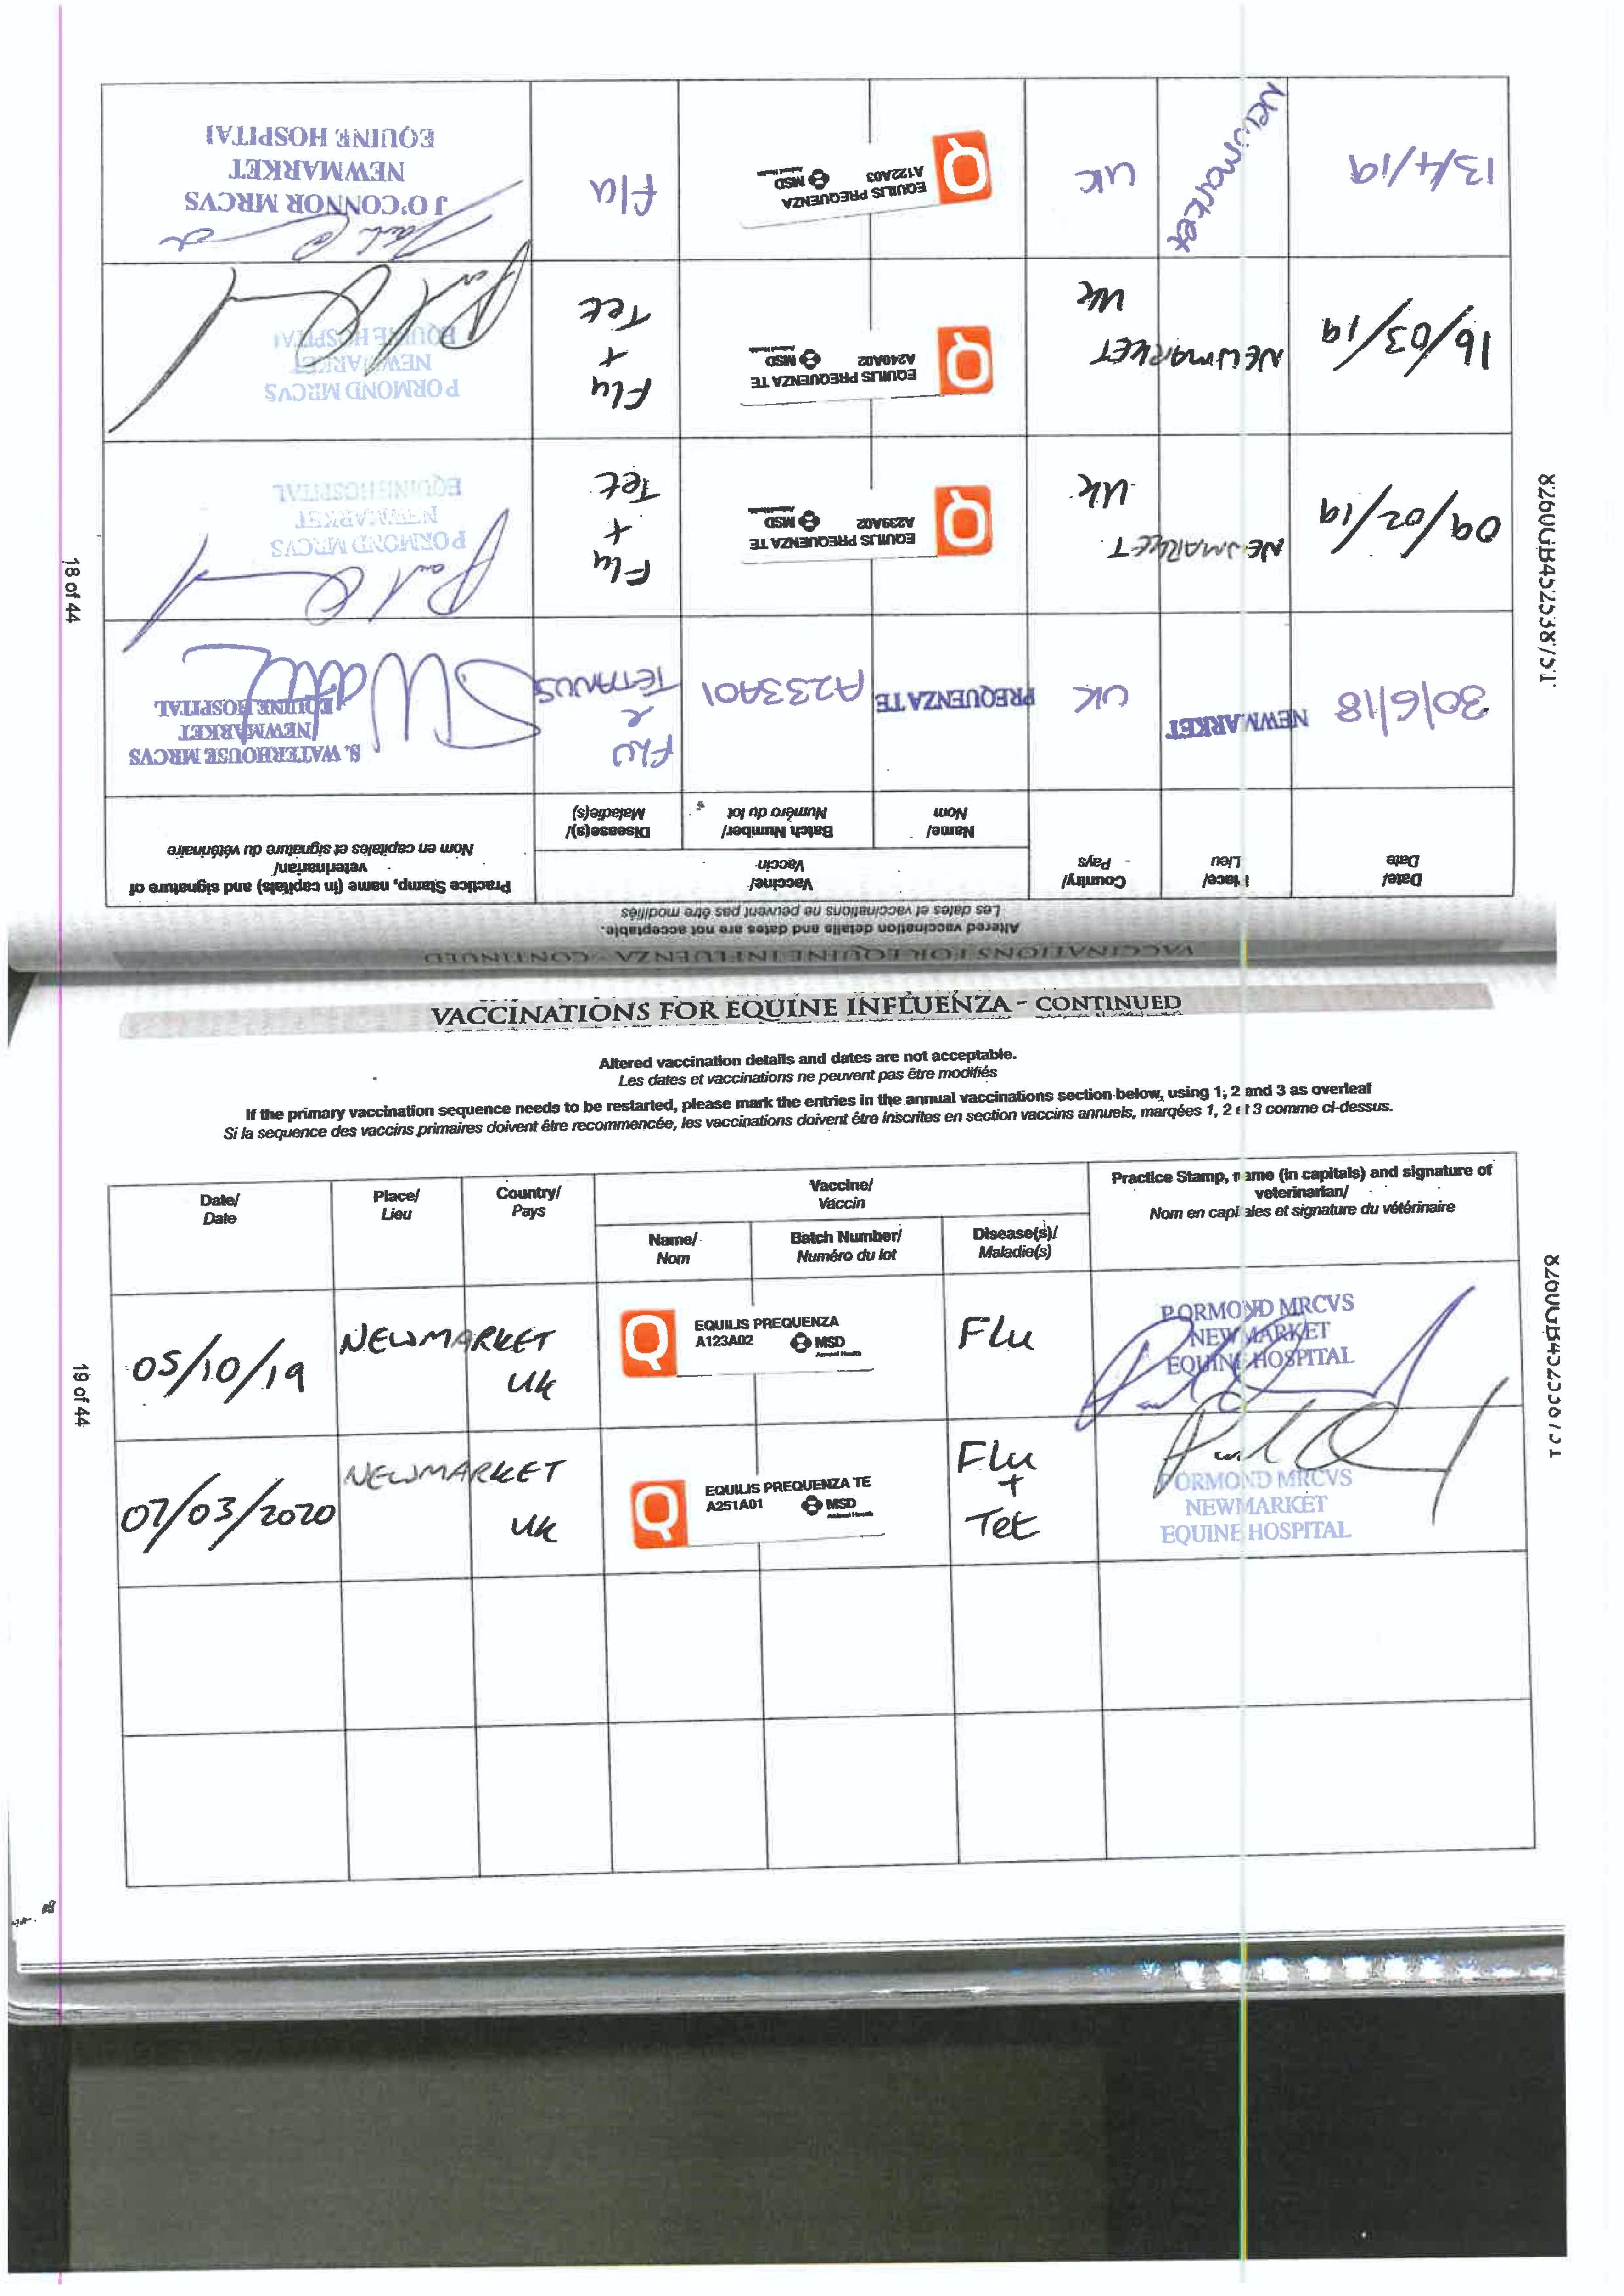 VACCINATIONS FOR EQUINE INFLUENZA - CONTINUED
Altered vaccination details and dates are not acceptable.
Les dates et vaccinations ne peuvent pas être modifiés
Date/ Date
Place/ Lieu
Country/ - Pays
Vaccine/ Vaccin
Name/ Nom
Batch Number/ Numéro du lot
Disease(s)/ Maladie(s)
Practice Stamp, name (in capitals) and signature of
veterinarian/
Nom en capitales et signature du vétérinaire
30/6/18 NEWMARKET UK PREQUENZA TE A233A01 FLU & TETANUS
S. WATERHOUSE MRCVS
NEWMARKET
EQUINE HOSPITAL
09/02/19 NEWMARKET UK
EQUILIS PREQUENZA TE
A239A02 MSD
Animal Health
Flu + Tet
P ORMOND MRCVS
NEWMARKET
EQUINE HOSPITAL
16/03/19 NEWMARKET UK
EQUILIS PREQUENZA TE
A240A02 MSD
Animal Health
Flu + Tet
P ORMOND MRCVS
NEWMARKET
EQUINE HOSPITAL
13/4/19 Newmarket UK
EQUILIS PREQUENZA
A122A03 MSD
Animal Health
Flu
J O'CONNOR MRCVS
NEWMARKET
EQUINE HOSPITAL
18 of 44
VACCINATIONS FOR EQUINE INFLUENZA - CONTINUED
Altered vaccination details and dates are not acceptable.
Les dates et vaccinations ne peuvent pas être modifiés
If the primary vaccination sequence needs to be restarted, please mark the entries in the annual vaccinations section below, using 1, 2 and 3 as overleaf
Si la sequence des vaccins primaires doivent être recommencée, les vaccinations doivent être inscrites en section vaccins annuels, marqées 1, 2 et 3 comme ci-dessus.
Date/ Date
Place/ Lieu
Country/ Pays
Vaccine/ Vaccin
Name/ Nom
Batch Number/ Numéro du lot
Disease(s)/ Maladie(s)
Practice Stamp, name (in capitals) and signature of
veterinarian/
Nom en capitales et signature du vétérinaire
05/10/19 NEWMARKET UK
EQUILIS PREQUENZA
A123A02 MSD
Animal Health
Flu
P ORMOND MRCVS
NEWMARKET
EQUINE HOSPITAL
07/03/2020 NEWMARKET UK
EQUILIS PREQUENZA TE
A251A01 MSD
Animal Health
Flu + Tet
P ORMOND MRCVS
NEWMARKET
EQUINE HOSPITAL
19 of 44